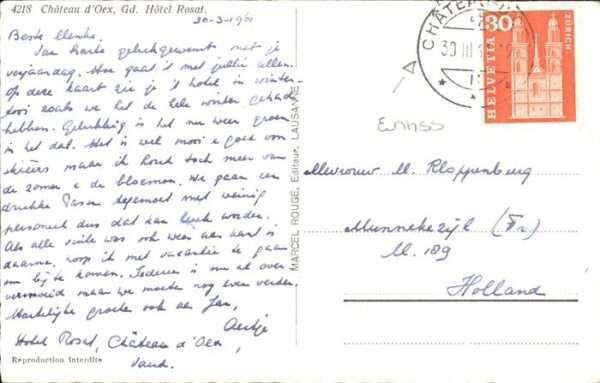 4218 Château d'Oex, Gd. Hôtel Rosat.
30-3-1961
Beste
Van harte gefeliciteerd met je
verjaardag. Hoe gaat 't met jullie allen.
Op deze kaart zie je 't hotel in winter-
tooi zoals we het de hele winter gehad
hebben. Gelukkig is het nu weer groen
in het dal. Het is wel mooi & goed voor
skiërs maar ik houd toch meer van
de zomer & de bloemen. We gaan een
drukke Pasen tegemoet met weinig
personeel dus dat kan leuk worden.
Als alle visite was ook weer aan kant is
daarna, hoop ik met vacantie te gaan
om bij te komen. Iedereen is nu al over
vermoeid maar we moeten nog even verder.
Hartelijke groeten ook aan Jan,
Aartje
Hotel Rosat, Château d'Oex,
Vaud.
Reproduction interdite
MARCEL ROUGE, Editeur, LAUSANNE
CHÂTEAU
30 III
HELVETIA
30
ZÜRICH
Mevrouw M. Kloppenburg
Munnekezijl (Fr.)
M. 189
Holland